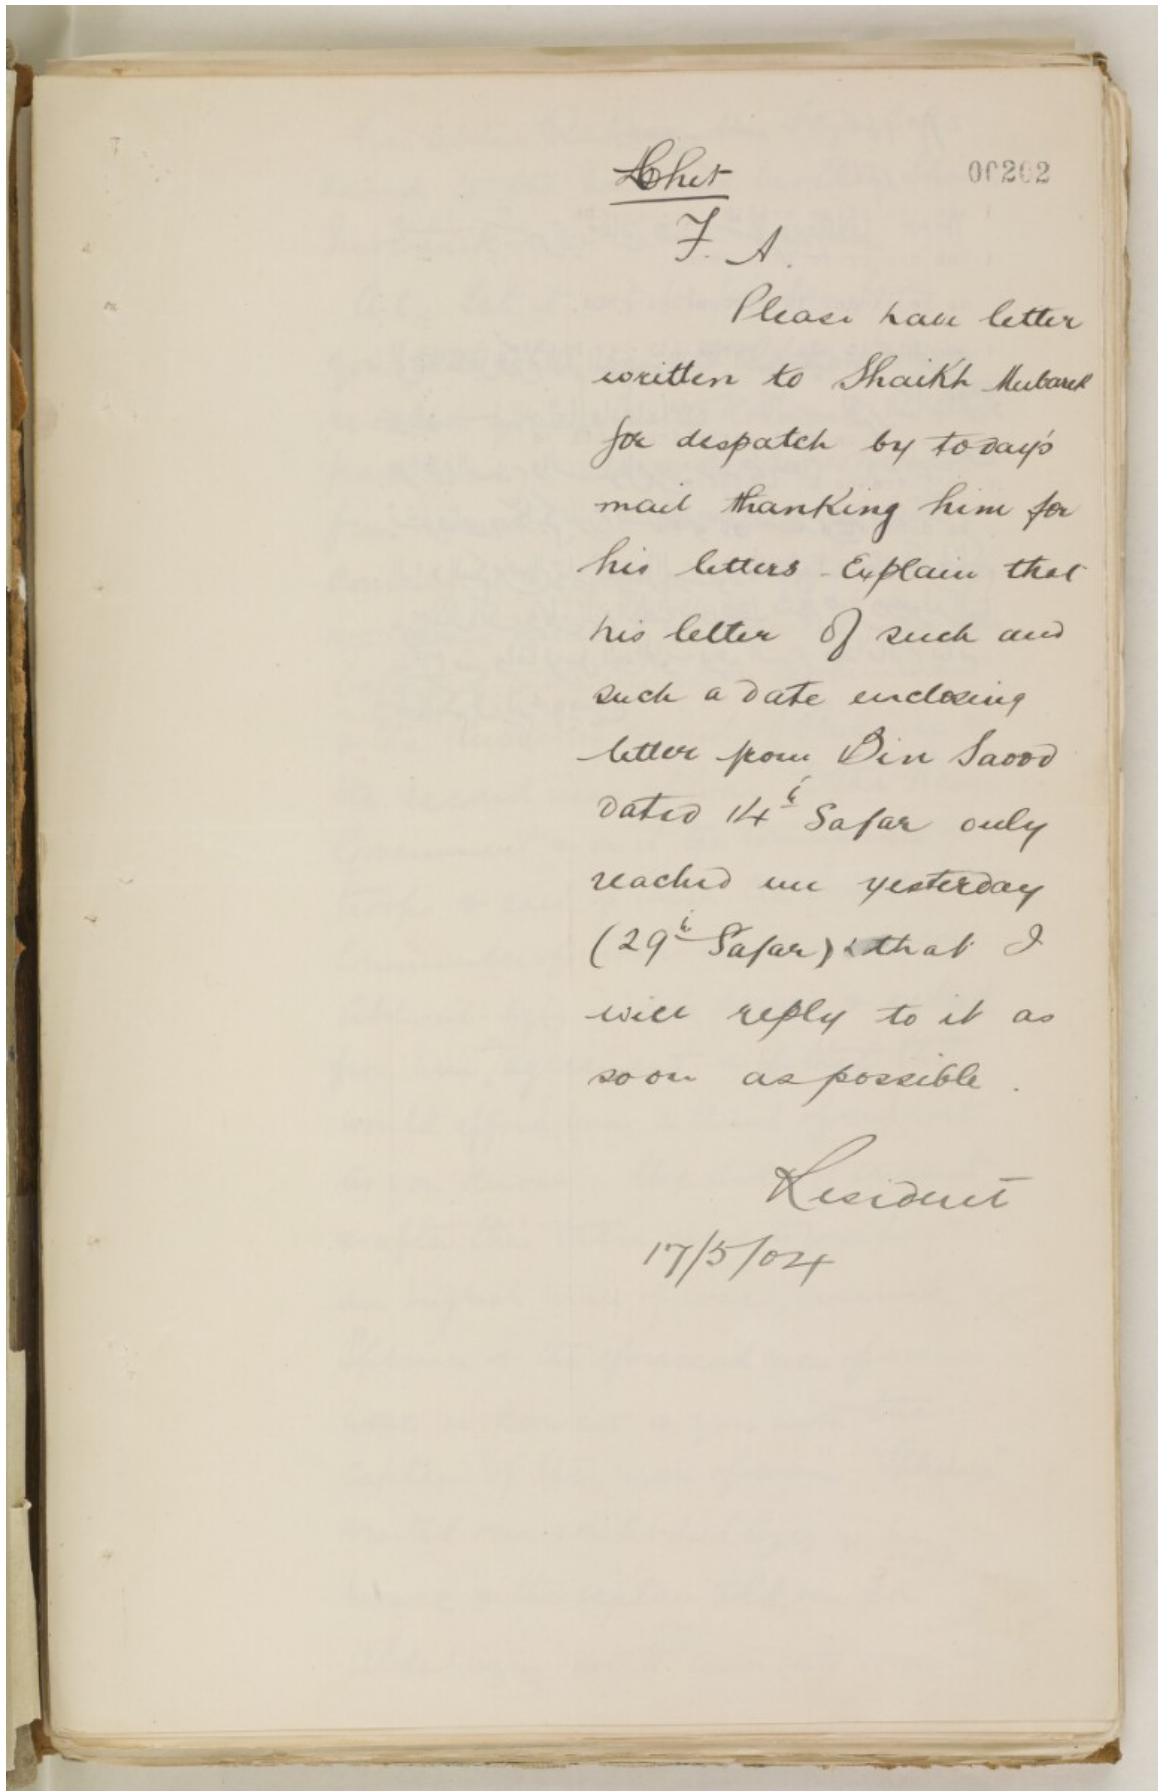 Chit
00202
F. A.
Please have letter
written to Shaikh Mubarek
for despatch by today's
mail thanking him for
his letters - Explain that
his letter of such and
such a date enclosing
letter from Bin Saood
dated 14th Safar only
reached me yesterday
(29th Safar) & that I
will reply to it as
soon as possible.
Resident
17/5/04